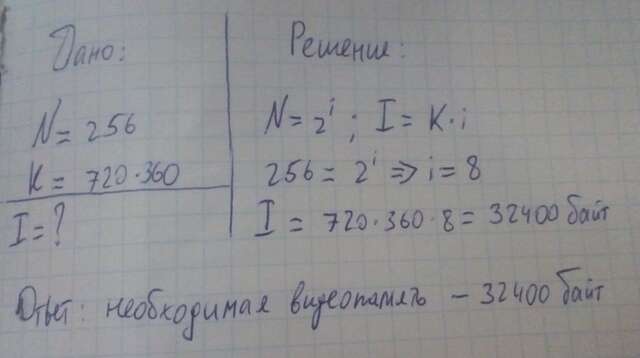 Дано:
N = 256
K = 720·360
I = ?
Решение:
N = 2^i ; I = K·i
256 = 2^i => i = 8
I = 720·360·8 = 32400 байт
Ответ: необходимая видеопамять – 32400 байт